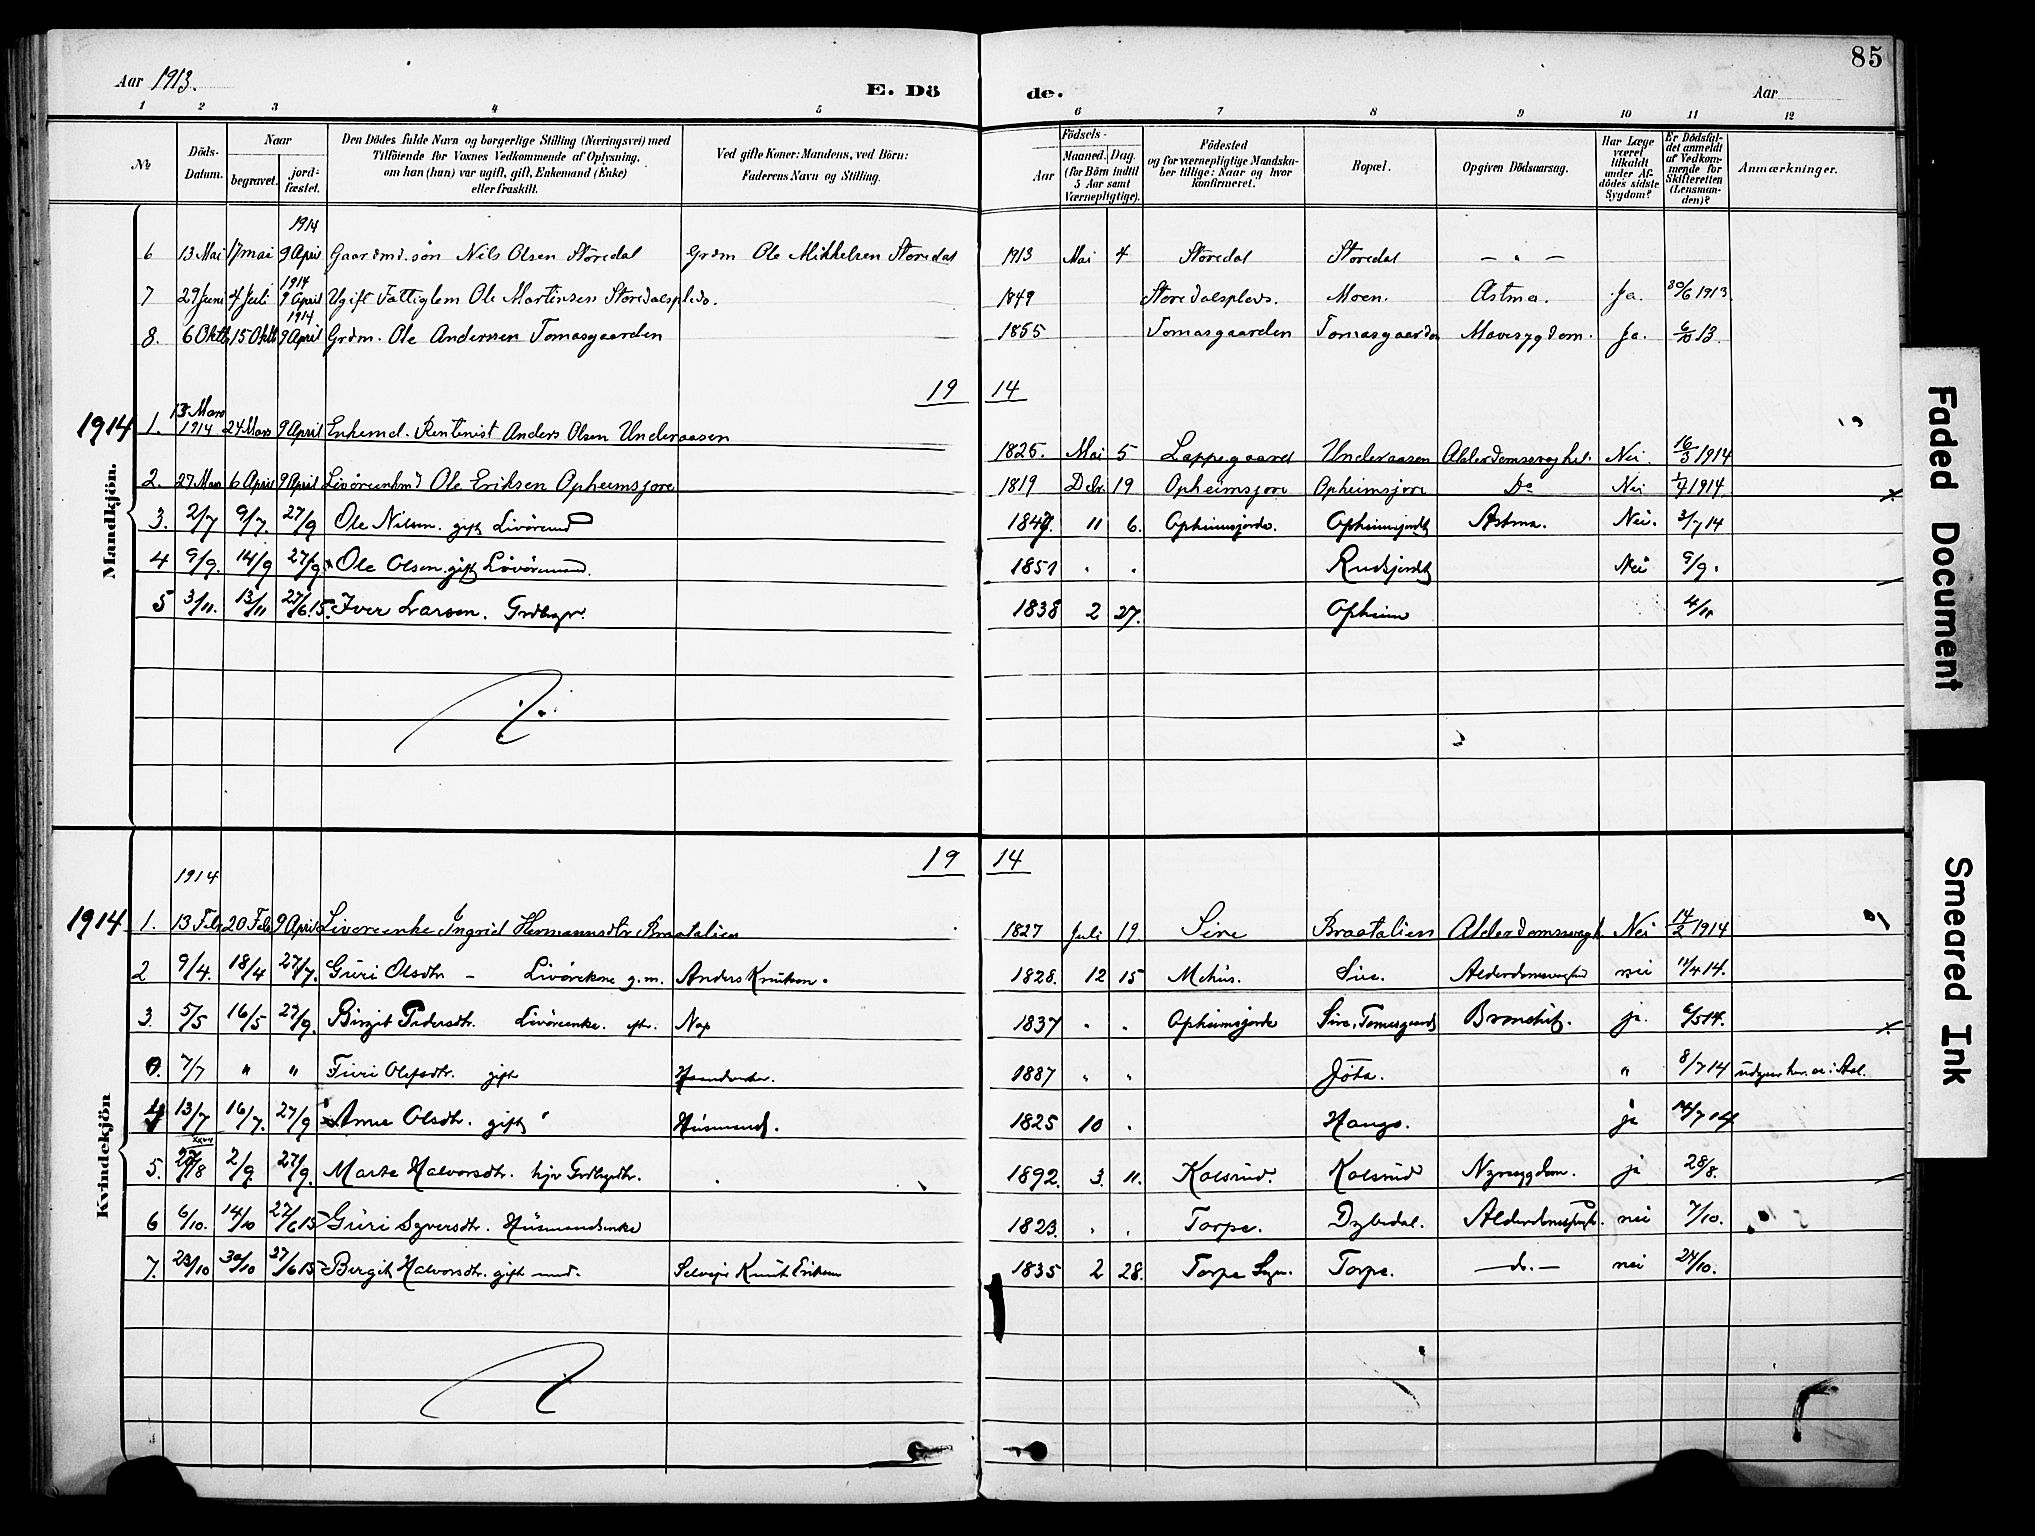 85
Aar 1913.
E. Dö de.
Aar
1 2 3 4 5 6 7 8 9 10 11 12
No
Döds-Datum.
Naar
begravet.
jord-fæstet.
Den Dödes fulde Navn og borgerlige Stilling (Næringsvei) med
Tilföiende for Voxnes Vedkommende af Oplysning,
om han (hun) var ugift, gift, Enkemand (Enke)
eller fraskilt.
Ved gifte Koner: Mandens, ved Börn:
Faderens Navn og Stilling.
Födsels-
Aar
Maaned. Dag.
(for Börn indtil
5 Aar samt
Værnepligtige).
Födested
og for værnepligtige Mandska-
ber tillige: Naar og hvor
konfirmeret.
Bopæl.
Opgiven Dödsaarsag.
Har Læge
været
tilkaldt
under Af-
dødes sidste
Sygdom?
Er Dödsfal-
det anmeldt
af Vedkom-
mende for
Skifteretten
(Lensman-
den)?
Anmærkninger.
Mandkjön.
1914
6 13 Mai 17 mai 9 April Gaardmd. søn Nils Olsen Storedal Grdm Ole Mikkelsen Storedal 1913 Mai 4 Storedal Storedal — " —
1914
7 29 Juni 4 Juli 9 April Ugift Fattiglem Ole Martinsen Storedalsplds. 1849 Storedalsplads. Moen. Astma. Ja. 30/6 1913
1914
8. 6 Oktb 15 Oktb 9 April Grdm. Ole Andersen Tomasgaarden 1855 Tomasgaarden Tomasgaarden Mavesygdom. Ja. 6/10 13.
19 14
1914 1. 13 Mars 1914 24 Mars 9 April Enkemd. Rentenist Anders Olsen Underaasen 1825. Mai 5 Lappegaard Underaasen Alderdomssvaghet. Nei. 16/3 1914
2. 27 Mars 6 April 9 April Livöreenkmd Ole Eriksen Opheimsjore 1819 Decbr. 19 Opheimsjore Opheimsjore Do Nei 1/4 1914.
3. 2/7 9/7. 27/9 Ole Nilsen. gift Livöremd 1847. 11 6. Opheimsjorde. Opheimsjordet Astma. Nei. 3/7 14
4 9/9. 14/9 27/9. Ole Olsen. gift Livöremand. 1851 " " Rudsjordet Nei 9/9.
5 3/11. 13/11 27/6.15. Iver Larsen. Grdbrgr. 1838 2 27. Opheim 4/11
Kvindekjön
19 14
1914
1914 1. 13 Febr 20 Feb 9 April Livöreenke Ingrid Hermannsdtr Braatalien 1827 Juli 19. Sire Braatalien Alderdomssvagh Nei 14/2 1914
2 9/4. 18/4 27/7. Guri Olsdtr — Livörekone g.m. Anders Knutsen. 1828. 12 15 Mehus. Sire. Alderdomssvaghed nei 11/4 14.
3. 5/5 16/5 27/9. Birgit Pedersdtr. Livöreenke. eftr. 1837 " " Opheimsjorde Sire, Tomasgaard Bronchit. ja. 6/5 14.
0. 7/7 " " Turi Olsdtr. gift 1887 " " Jöta. " 8/7 14
4 13/7 16/7. 27/9 Anne Olsdtr. gift Husmand. 1825 10 " Haugs. ja 14/7 14
5. 27/8 2/9. 27/9. Marte Halvorsdtr. hjv Grdbrgrdtr. 1892. 3. 11. Kolsrud. Kolsrud Nyresygdom. ja 28/8.
6 6/10. 14/10 27/6 15 Guri Syversdtr. Husmandsenke 1823. " " Torpe. Dybedal. Alderdomssvagh. nei 7/10.
7. 23/10 30/10 27/6 15 Bergit Halvorsdtr. gift med. Selveier Knut Eriksen 1835 2 28. Torpe Sogn. Torpe. —do.— nei 24/10.
Faded Document
Smeared Ink